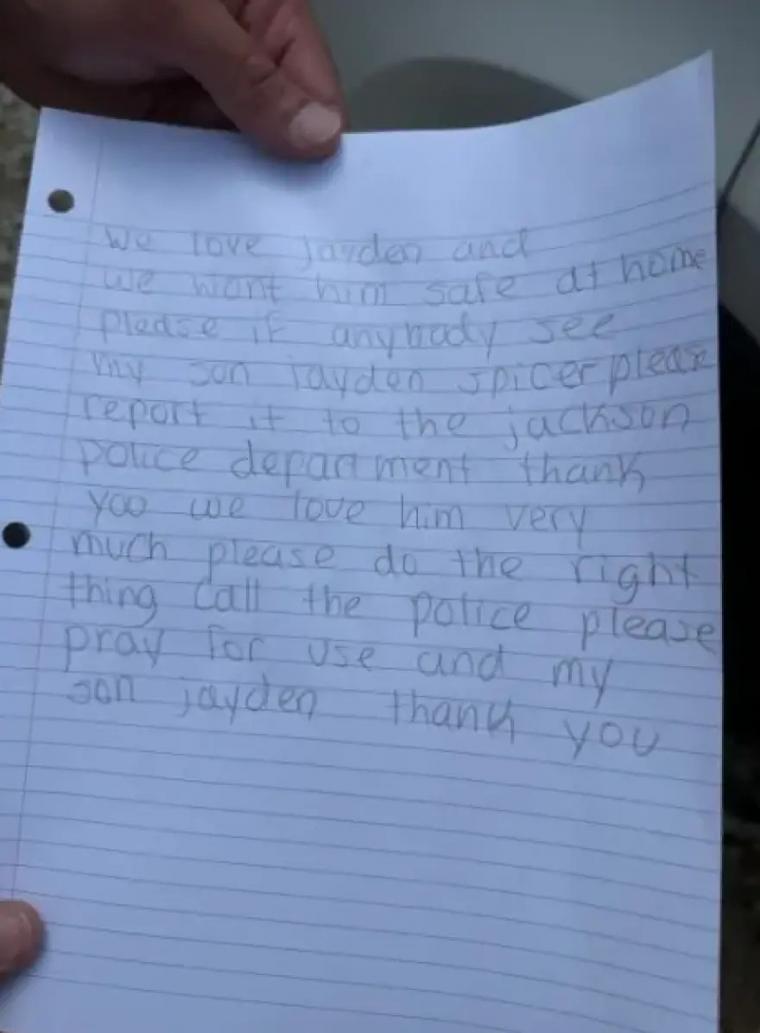 we love jayden and
we want him safe at home
please if anybody see
my son jayden spicer please
report it to the jackson
police department thank
yoo we love him very
much please do the right
thing call the police please
pray for use and my
son jayden thank you